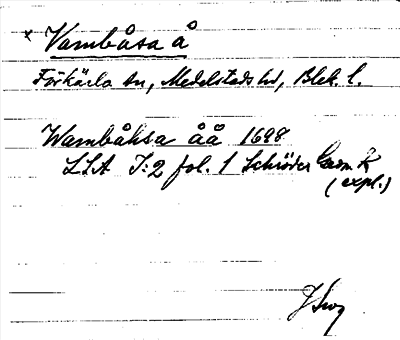 × Vambåsa å
Förkärla sn, Medelstads hd, Blek. l.
Wambåhsa åå 1698
LSA I:2 fol. 1 Schröder
(expl.)